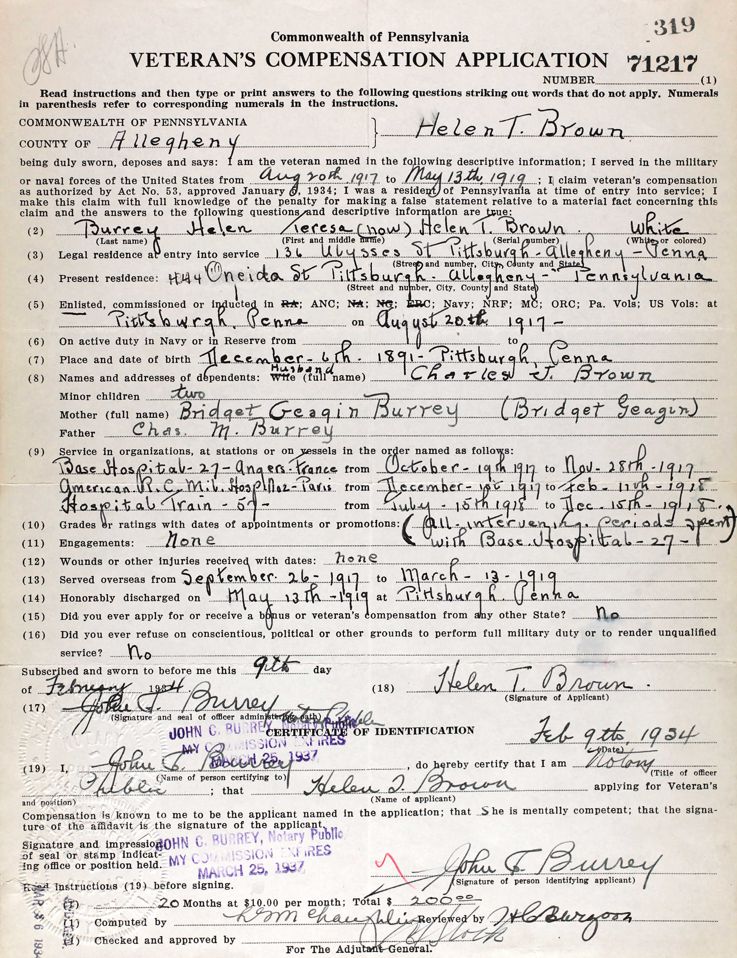 319
Commonwealth of Pennsylvania
VETERAN'S COMPENSATION APPLICATION 71217
NUMBER (1)
Read instructions and then type or print answers to the following questions striking out words that do not apply. Numerals
in parenthesis refer to corresponding numerals in the instructions.
COMMONWEALTH OF PENNSYLVANIA
COUNTY OF Allegheny } Helen T. Brown
being duly sworn, deposes and says: I am the veteran named in the following descriptive information; I served in the military
or naval forces of the United States from Aug 20th, 1917 to May 13th, 1919; I claim veteran's compensation
as authorized by Act No. 53, approved January 5, 1934; I was a resident of Pennsylvania at time of entry into service; I
make this claim with full knowledge of the penalty for making a false statement relative to a material fact concerning this
claim and the answers to the following questions and descriptive information are true:
(2) Burrey Helen Teresa (now) Helen T. Brown. White
(Last name) (First and middle name) (Serial number) (White or colored)
(3) Legal residence at entry into service 136 Ulysses St Pittsburgh - Allegheny - Penna
(Street and number, City, County and State)
(4) Present residence: Oneida St Pittsburgh - Allegheny - Pennsylvania
(Street and number, City, County and State)
(5) Enlisted, commissioned or inducted in RA; ANC; NA; NG; ERC; Navy; NRF; MC; ORC; Pa. Vols; US Vols: at
Pittsburgh, Penna on August 20th 1917 -
(6) On active duty in Navy or in Reserve from to
(7) Place and date of birth December - 6th. 1891 - Pittsburgh, Penna
(8) Names and addresses of dependents: Wife Husband (full name) Charles J. Brown
Minor children two
Mother (full name) Bridget Geagin Burrey (Bridget Geagin)
Father Chas. M. Burrey
(9) Service in organizations, at stations or on vessels in the order named as follows:
Base Hospital - 27 - Angers. France from October - 19th 1917 to Nov - 28th - 1917
American. R.C. Mil. Hospl No 2 - Paris from December - 1st 1917 to Feb - 11th - 1918
Hospital Train - 57 - from July - 15th 1918 to Dec. 15th - 1918.
(10) Grades or ratings with dates of appointments or promotions: (All intervening periods spent
(11) Engagements: None with Base Hospital - 27 -)
(12) Wounds or other injuries received with dates: none
(13) Served overseas from September - 26 - 1917 to March - 13 - 1919
(14) Honorably discharged on May 13th - 1919 at Pittsburgh Penna
(15) Did you ever apply for or receive a bonus or veteran's compensation from any other State? No
(16) Did you ever refuse on conscientious, political or other grounds to perform full military duty or to render unqualified
service? No
Subscribed and sworn to before me this 9th day
of February 1934 (18) Helen T. Brown.
(Signature of Applicant)
(17) John G. Burrey
(Signature and seal of officer administering oath) Notary Public
JOHN C. BURREY, Notary Public
MY COMMISSION EXPIRES
MARCH 25, 1937
CERTIFICATE OF IDENTIFICATION Feb 9th 1934
(Date)
(19) I, John G. Burrey, do hereby certify that I am Notary
(Name of person certifying to) (Title of officer
Public; that Helen T. Brown applying for Veteran's
and position) (Name of applicant)
Compensation is known to me to be the applicant named in the application; that She is mentally competent; that the signa-
ture of the affidavit is the signature of the applicant.
Signature and impression
of seal or stamp indicat-
ing office or position held.
JOHN C. BURREY, Notary Public
MY COMMISSION EXPIRES
MARCH 25, 1937
John G. Burrey
(Signature of person identifying applicant)
Read Instructions (19) before signing.
20 Months at $10.00 per month; Total $ 200.00
(1) Computed by Reviewed by
(1) Checked and approved by
For The Adjutant General.